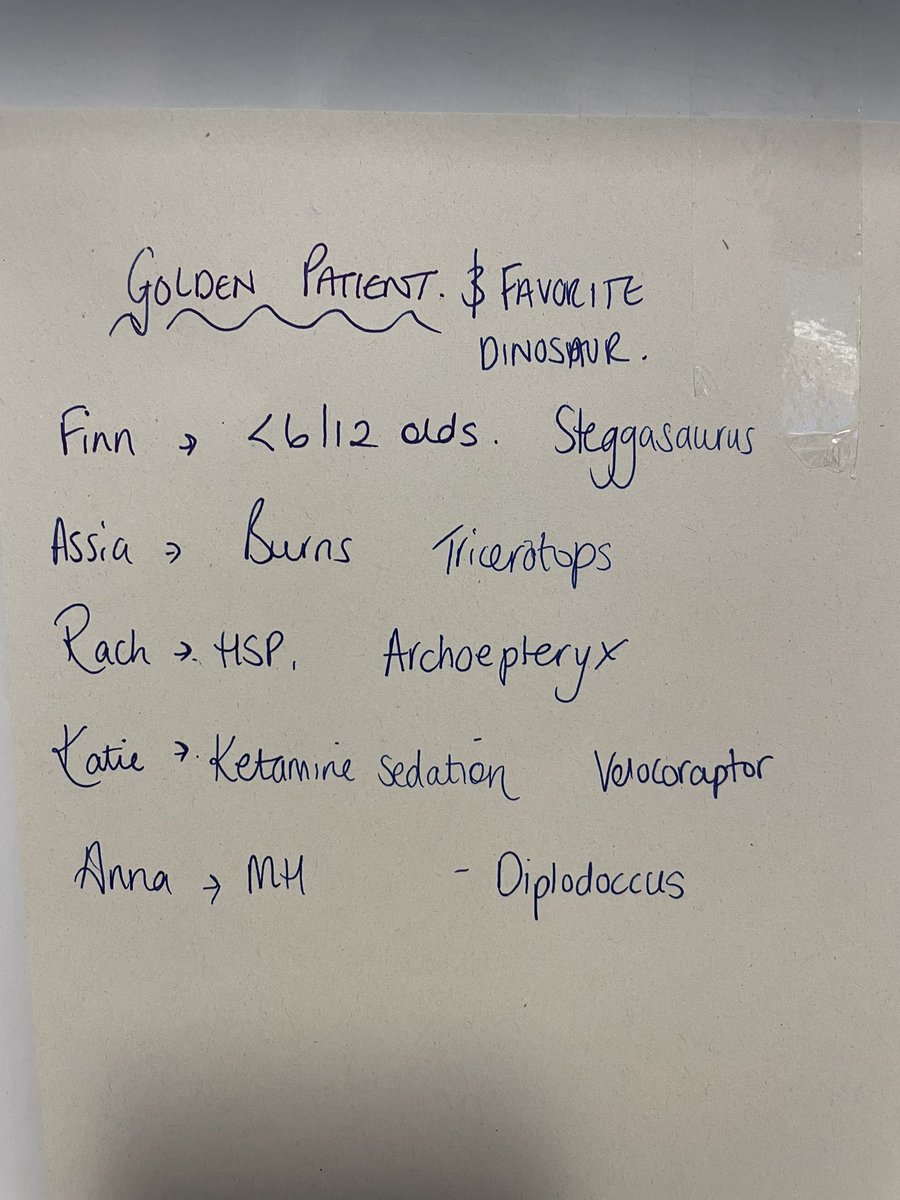 GOLDEN PATIENT. & FAVORITE
DINOSAUR.
Finn → <6/12 olds. Steggasaurus
Assia → Burns Tricerotops
Rach → HSP. Archoepteryx
Katie → Ketamine sedation Velocoraptor
Anna → MH - Diplodoccus